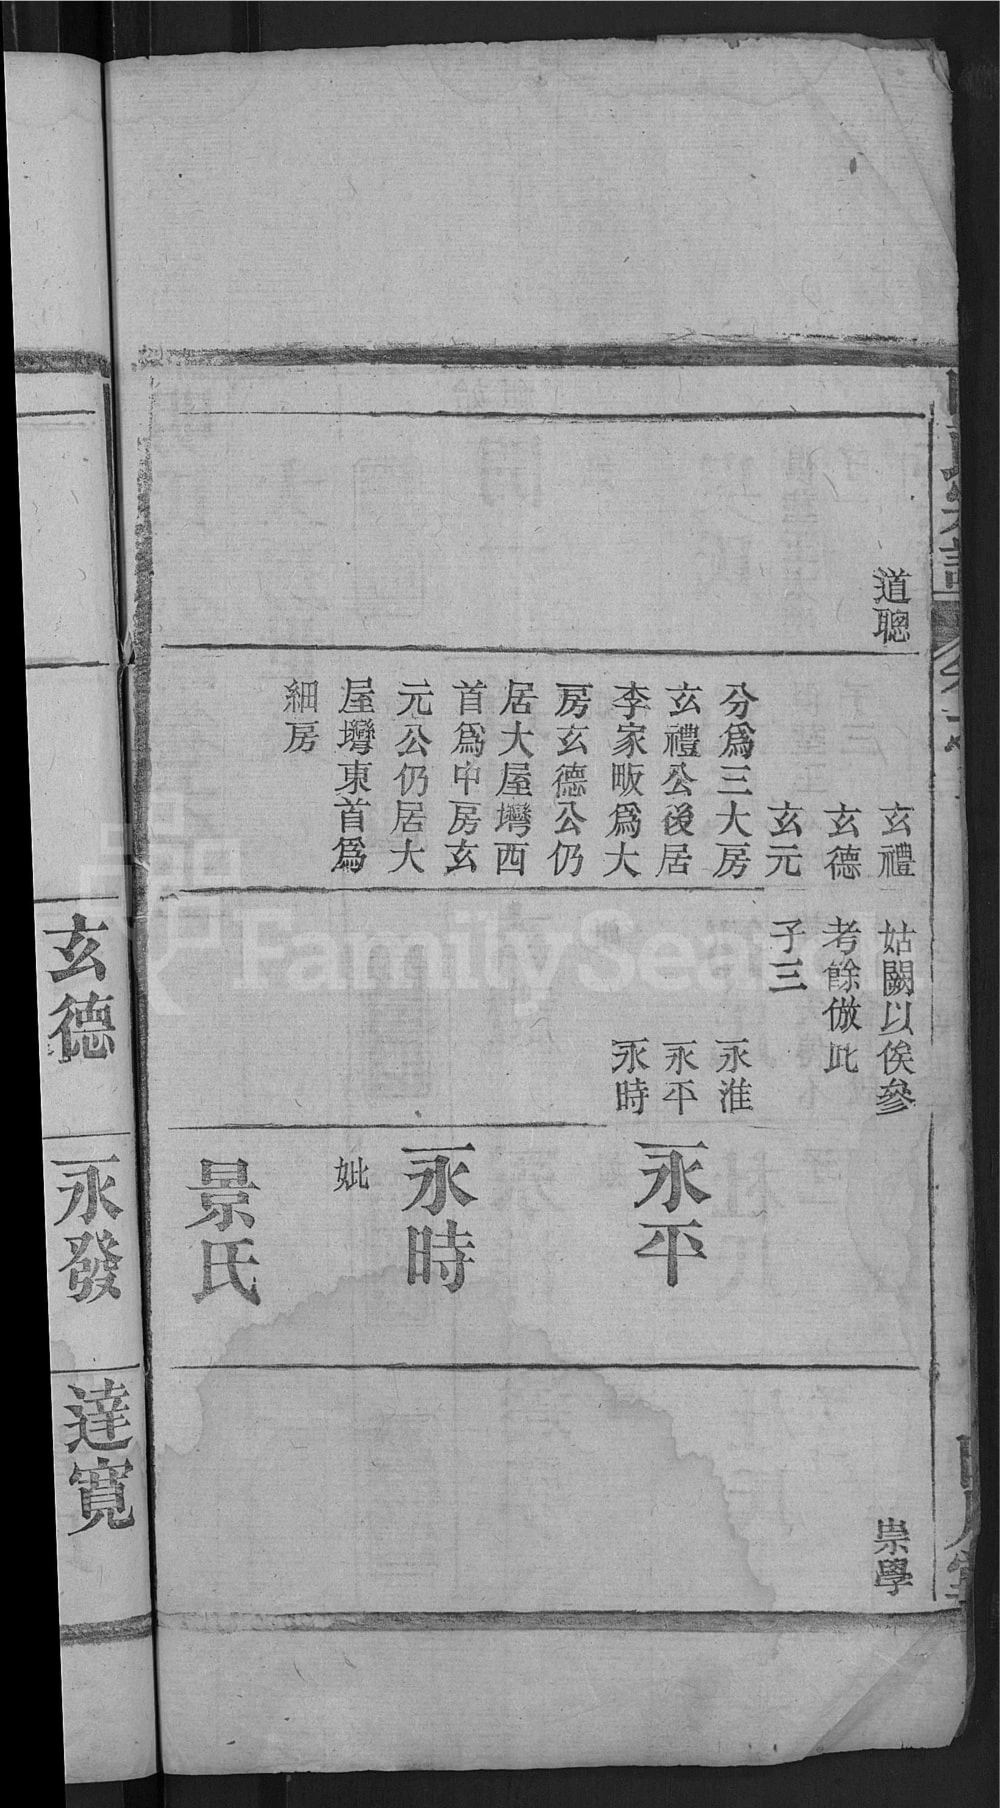 道聰
玄禮
玄德
玄元
分爲三大房
玄禮公後居
李家畈爲大
房玄德公仍
居大屋塆西
首爲中房玄
元公仍居大
屋塆東首爲
細房
姑闕以俟參
考餘倣此
子三
永淮
永平
永時
永平
永時
妣
景氏
崇學
玄德
永發
達寬
FamilySearch